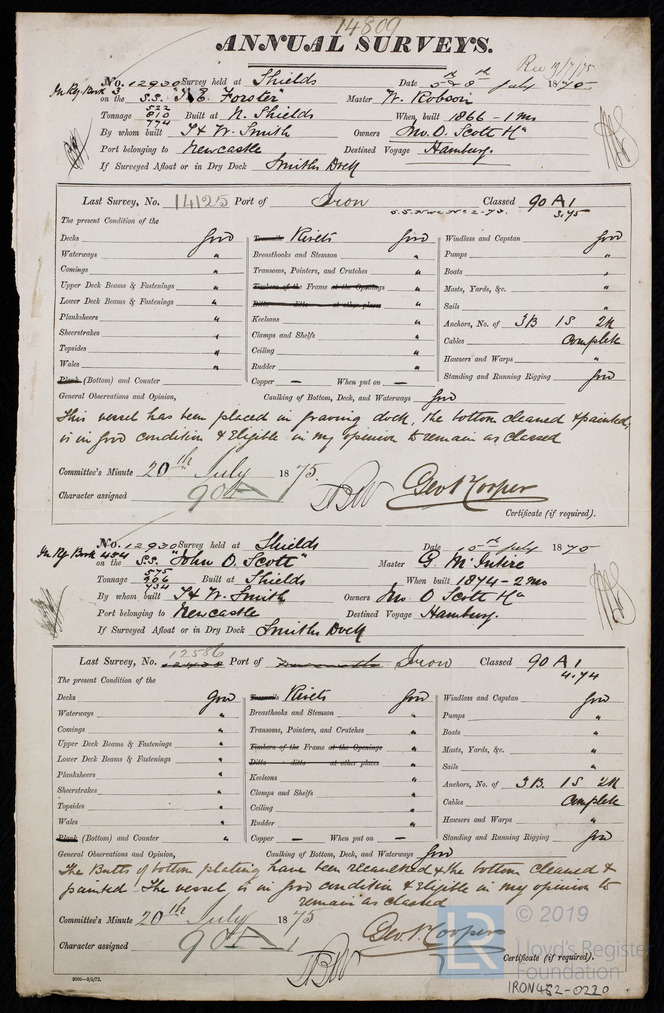 14809
ANNUAL SURVEYS.
No. 12930 Survey held at Shields Date July 1875
on the S.S. "T. E. Forster" Master W. Robson
Tonnage 522 810 774 Built at N. Shields When built 1866 - 1 mo
By whom built T & W. Smith Owners Jno. O. Scott
Port belonging to Newcastle Destined Voyage Hamburg.
If Surveyed Afloat or in Dry Dock Smiths Dock
Last Survey, No. 14125 Port of Iron Classed 90 A1
3.75
The present Condition of the
Decks Good Rivets Good Windlass and Capstan Good
Waterways " Breasthooks and Stemson " Pumps "
Comings " Transoms, Pointers, and Crutches " Boats "
Upper Deck Beams & Fastenings " Timbers of the Frame at the Openings " Masts, Yards, &c. "
Lower Deck Beams & Fastenings " Ditto ditto at other places Sails "
Planksheers " Keelsons " Anchors, No. of 3B 1S 2K
Sheerstrakes " Clamps and Shelfs " Cables Complete
Topsides " Ceiling " Hawsers and Warps "
Wales " Rudder " Standing and Running Rigging Good
Plank (Bottom) and Counter " Copper — When put on —
General Observations and Opinion, Caulking of Bottom, Deck, and Waterways Good
This vessel has been placed in graving dock, the bottom cleaned & painted,
is in good condition & Eligible in my opinion to remain as classed
Committee's Minute 20th July 1875.
Character assigned 90 A
Certificate (if required).
No. 12930 Survey held at Shields Date July 1875
In Rg Book 484 on the S.S. "John O. Scott" Master G. McIntire
Tonnage 575 906 734 Built at Shields When built 1874 - 2 mo
By whom built T & W. Smith Owners Jno. O Scott
Port belonging to Newcastle Destined Voyage Hamburg.
If Surveyed Afloat or in Dry Dock Smiths Dock
12586
Last Survey, No. Port of Iron Classed 90 A1
4.74
The present Condition of the
Decks Good Rivets Good Windlass and Capstan Good
Waterways " Breasthooks and Stemson " Pumps "
Comings " Transoms, Pointers, and Crutches " Boats "
Upper Deck Beams & Fastenings " Timbers of the Frame at the Openings Masts, Yards, &c. "
Lower Deck Beams & Fastenings " Ditto ditto at other places Sails "
Planksheers " Keelsons " Anchors, No. of 3B. 1S 2K
Sheerstrakes " Clamps and Shelfs " Cables Complete
Topsides " Ceiling " Hawsers and Warps "
Wales " Rudder " Standing and Running Rigging Good
Plank (Bottom) and Counter " Copper — When put on —
General Observations and Opinion, Caulking of Bottom, Deck, and Waterways Good
The Butts of bottom plating have been recaulked & the bottom cleaned &
painted The vessel is in good condition & Eligible in my opinion to
remain as classed
Committee's Minute 20th July 1875
Character assigned 90 A 1
Certificate (if required).
LR © 2019
Lloyd's Register
Foundation
IRON482-0220